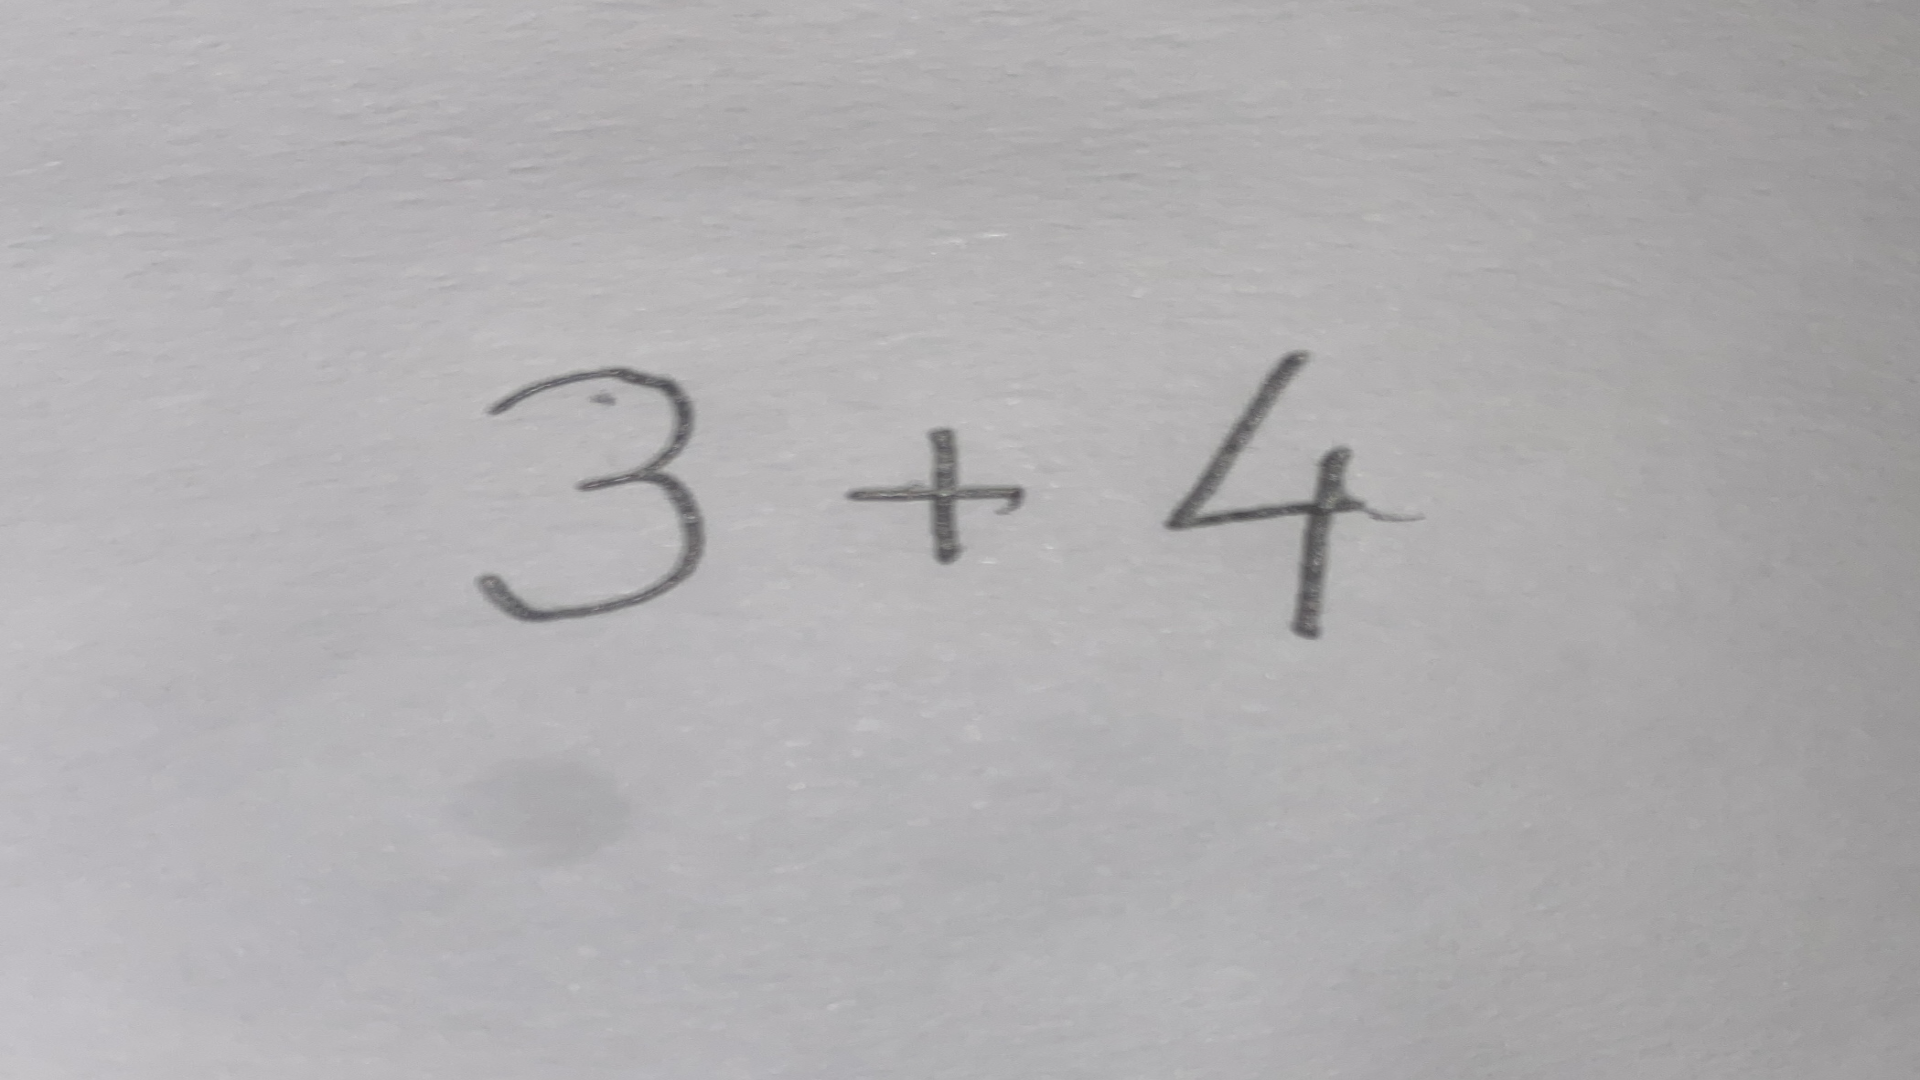 3 + 4